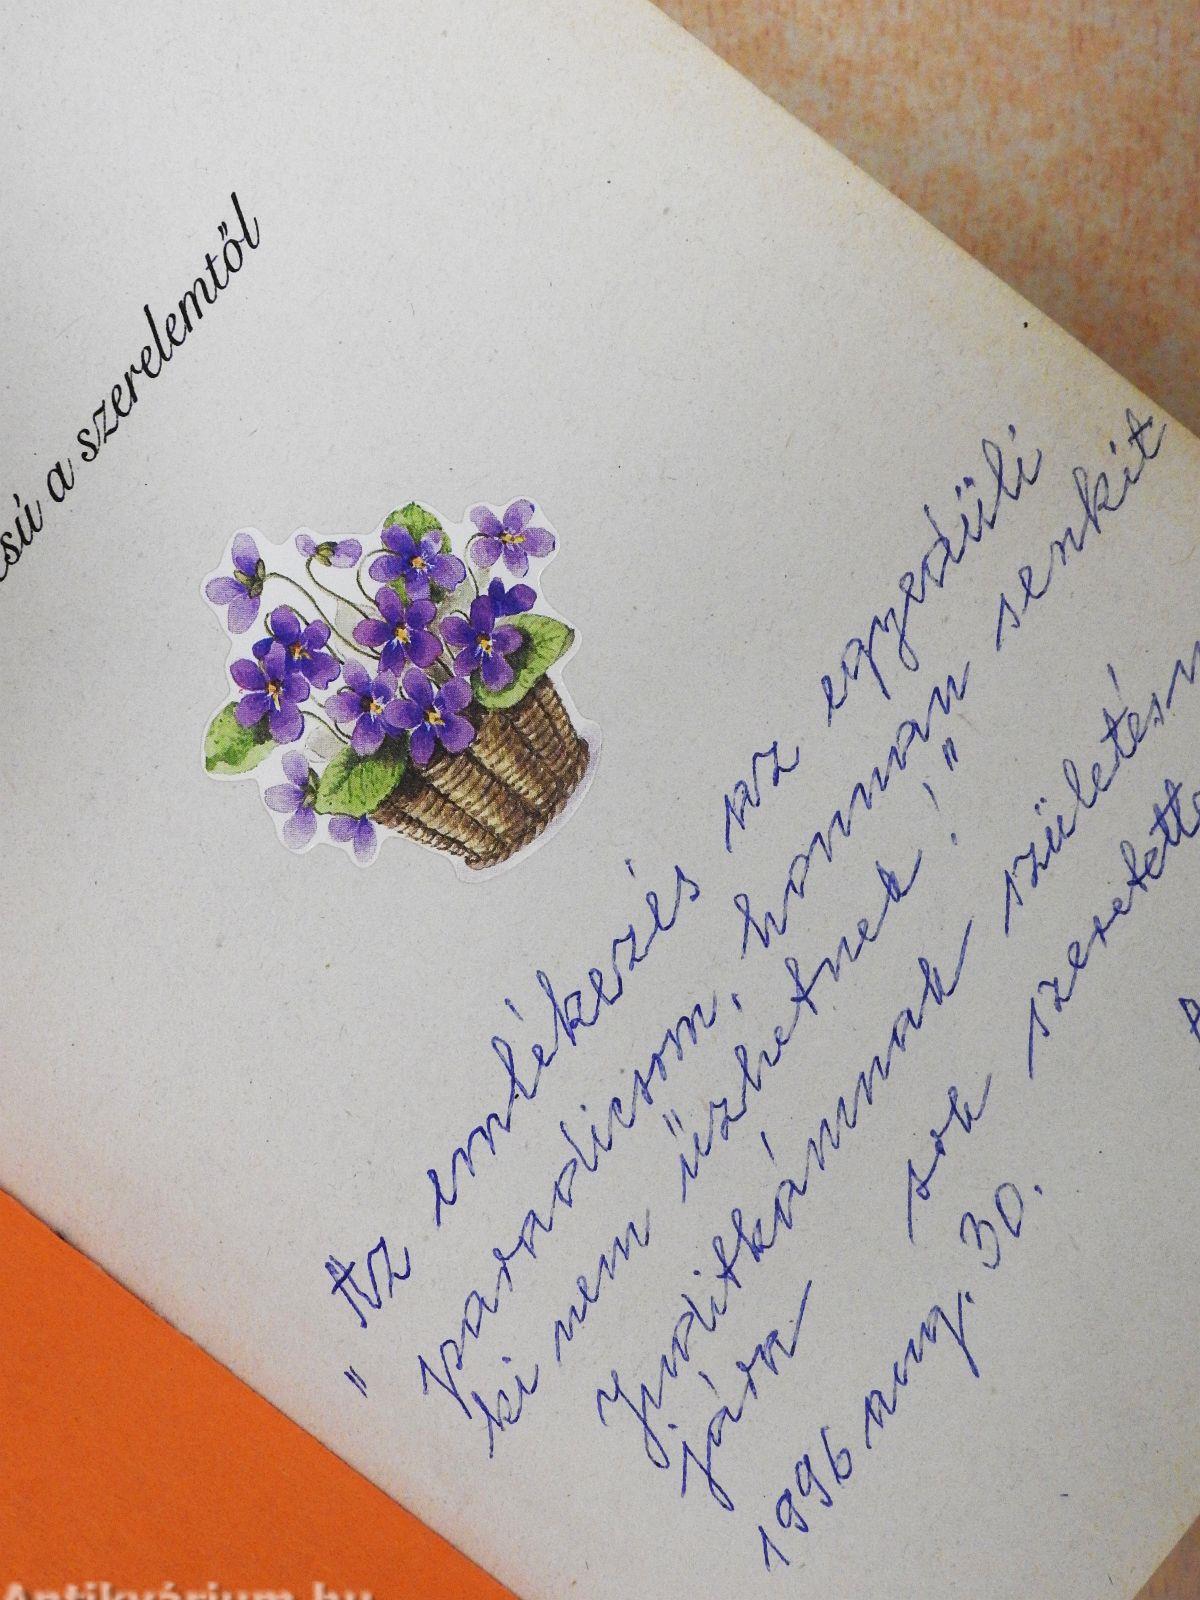 csú a szerelemtől
"Az emlékezés az egyedüli
paradicsom, honnan senkit
ki nem űzhetnek!"
Juditkámnak születésn
jára sok szeretett
1996 aug. 30.
Antikvárium.hu